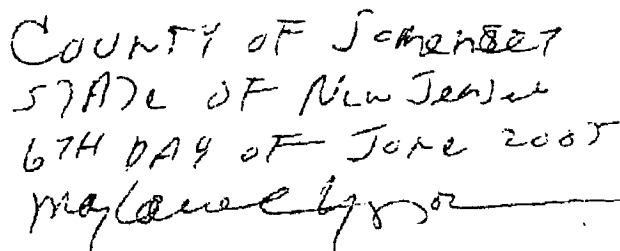 COUNTY OF Somerset
STATE OF New Jersey
6TH DAY OF June 2005